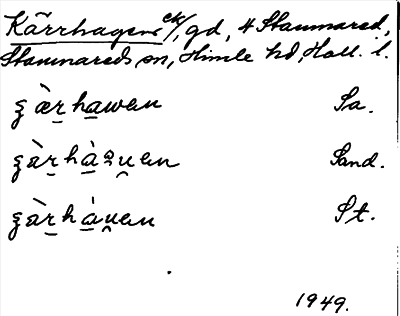 Kärrhagens ek/, gd, 4 Stamnared,
Stamnareds sn, Himle hd, Hall. l.
ʒæ̀rhawen Sa.
ʒàrhàꝛu̯en Sand.
ʒàrhàu̯en St.
1949.